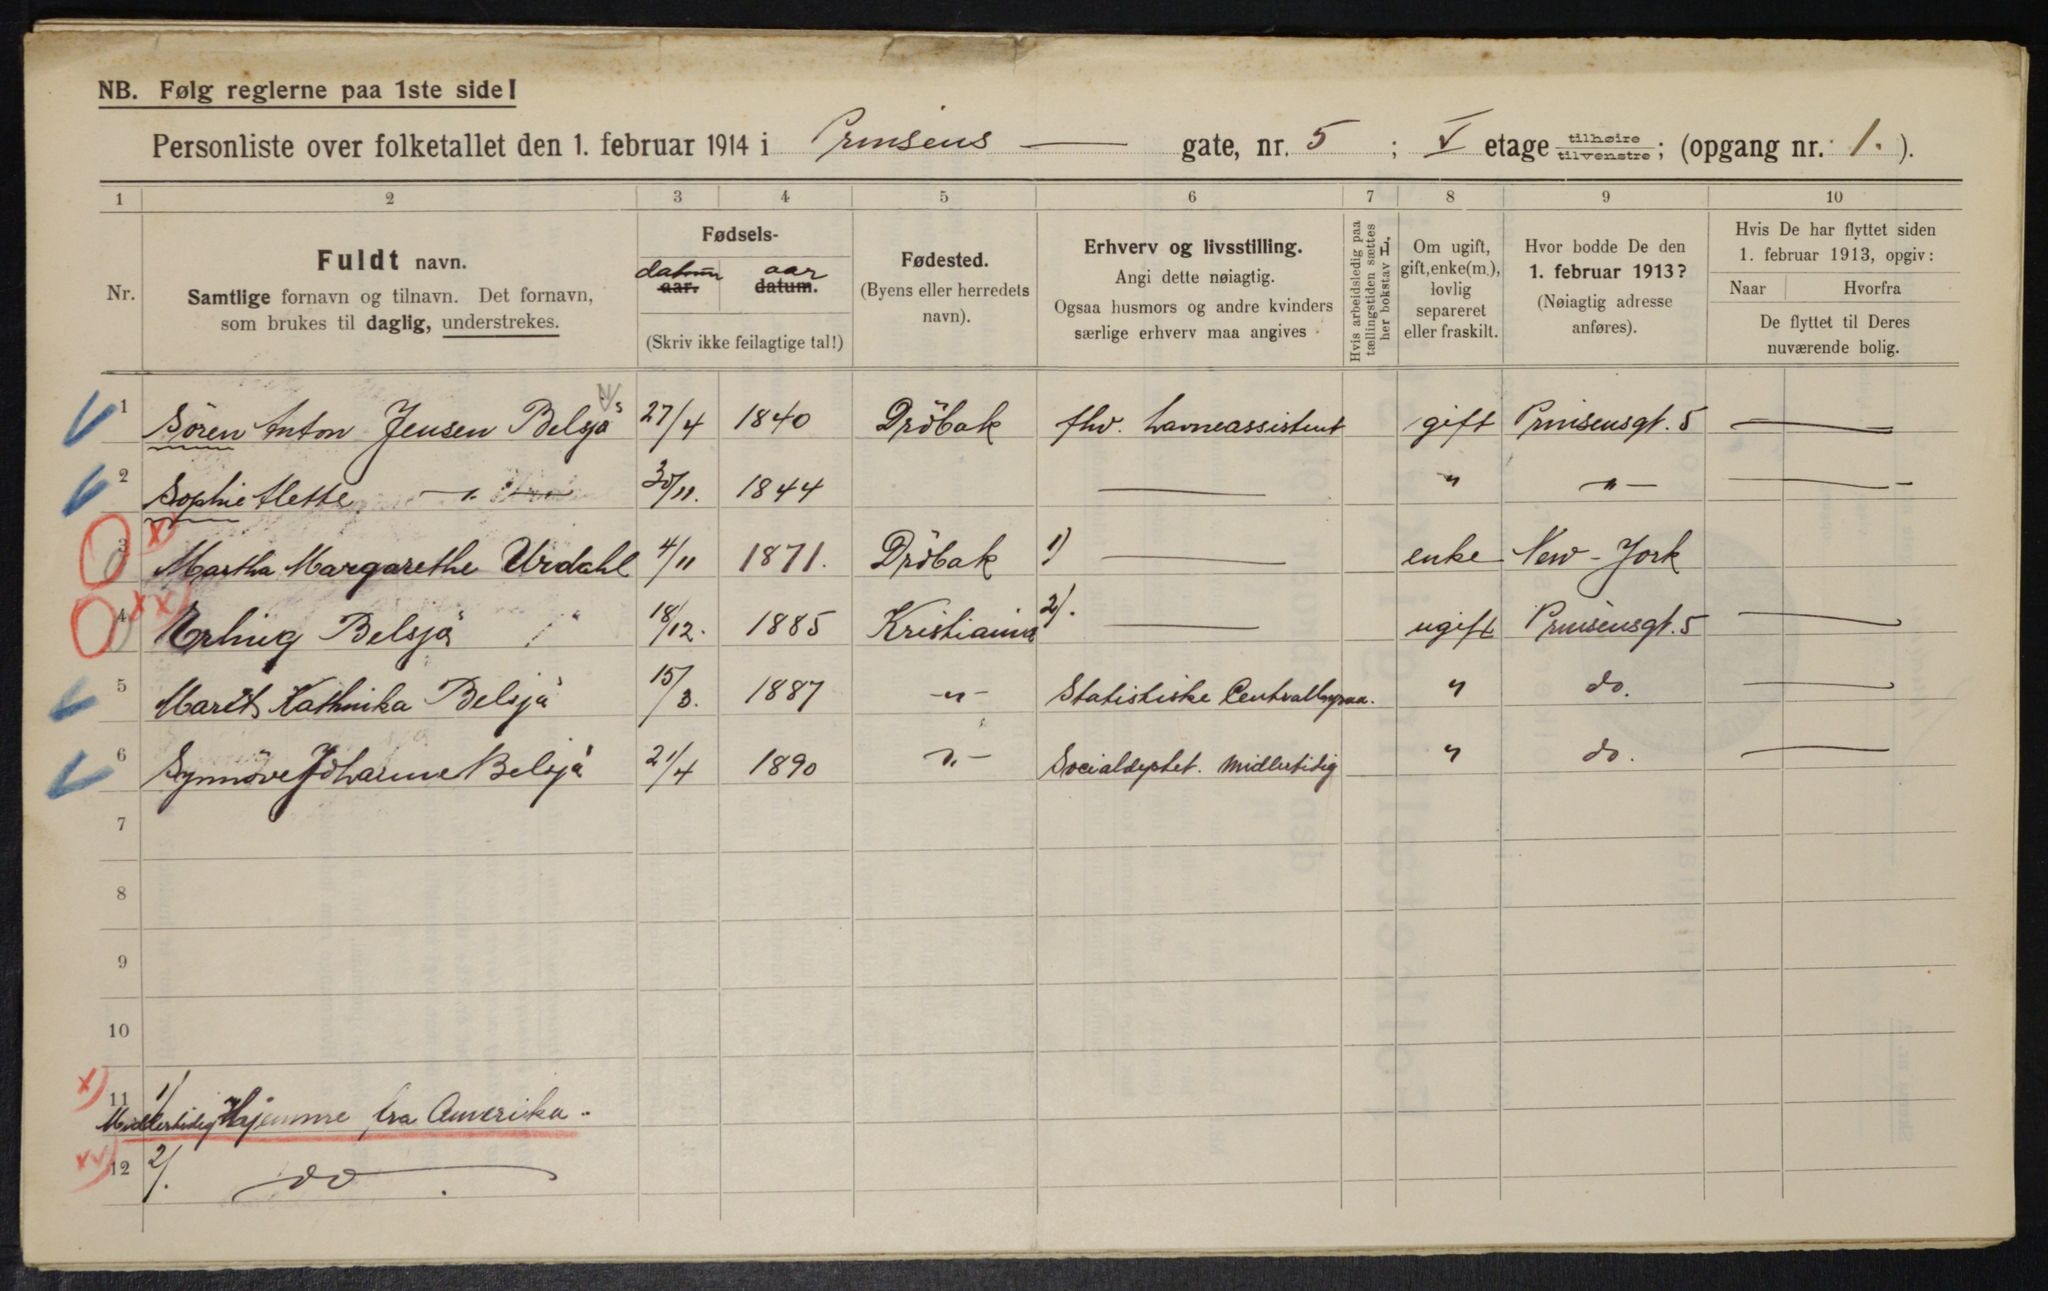 NB. Følg reglerne paa 1ste side!
Personliste over folketallet den 1. februar 1914 i Prinsens — gate, nr. 5 ; V etage tilhøire/tilvenstre; (opgang nr. 1.).
1 2 3 4 5 6 7 8 9 10
Nr.
Fuldt navn.
Samtlige fornavn og tilnavn. Det fornavn,
som brukes til daglig, understrekes.
Fødsels-
datum aar
aar. datum.
(Skriv ikke feilagtige tal!)
Fødested.
(Byens eller herredets
navn).
Erhverv og livsstilling.
Angi dette nøiagtig.
Ogsaa husmors og andre kvinders
særlige erhverv maa angives
Hvis arbeidsledig paa
tællingstiden sættes
her bokstav L.
Om ugift,
gift, enke(m.),
lovlig
separeret
eller fraskilt.
Hvor bodde De den
1. februar 1913?
(Nøiagtig adresse
anføres).
Hvis De har flyttet siden
1. februar 1913, opgiv:
Naar Hvorfra
De flyttet til Deres
nuværende bolig.
1 Sören Anton Jensen Belsjö 27/4 1840 Dröbak fhv. Havneassistent gift Prinsensgt. 5 —
2 Sophie Alette —"— 30/11. 1844 — " —"— —
3 x) Martha Margarethe Urdahl 4/11 1871. Dröbak 1) — enke New-York
4 xx) Erling Belsjö 18/12. 1885 Kristiania 2/. — ugift Prinsensgt. 5 —
5 Marit Kathinka Belsjö 15/3. 1887 —"— Statistiske Centralbyraa. " do. —
6 Synnöve Johanne Belsjö 21/4 1890 —"— Socialdeptet. Midlertidig " do. —
7
8
9
10
x) 11 1/
Midlertidig Hjemme fra Amerika.
xx) 12 2/. do.